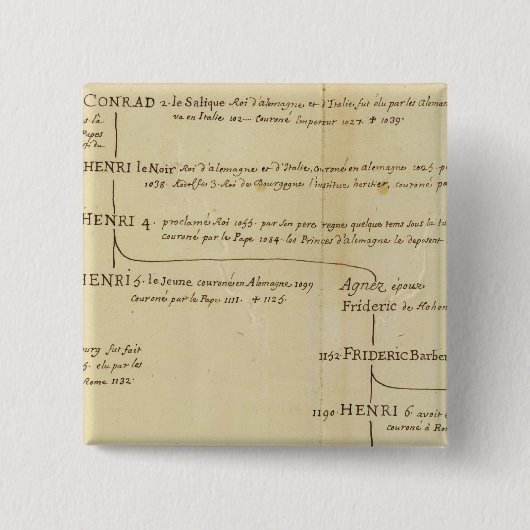 CONRAD 2. le Salique Roi d'alemagne et d'Italie, fut élu par les Aleman
va en Italie 102.... Couroné Empereur 1027. ✝ 1039.
s là
Papes
rf du
HENRI le Noir Roi d'alemagne et d'Italie, couroné en alemagne 1025. p
1038. Rodolfe 3. Roi de Bourgogne l'institue heritier, couroné pa
HENRI 4. proclamé Roi 1055. par son pere, regne quelque tems sous la tu
couroné par le Pape 1084. les Princes d'alemagne le deposent
HENRI 5. le Jeune couroné en Alemagne 1099
couroné par le Pape 1111. ✝ 1125.
Agnez épouse
Frideric de Hohen
ourg fut fait
5. elu par les
Rome 1132.
1152 FRIDERIC Barber
1190. HENRI 6. avoit é
couroné à Ro